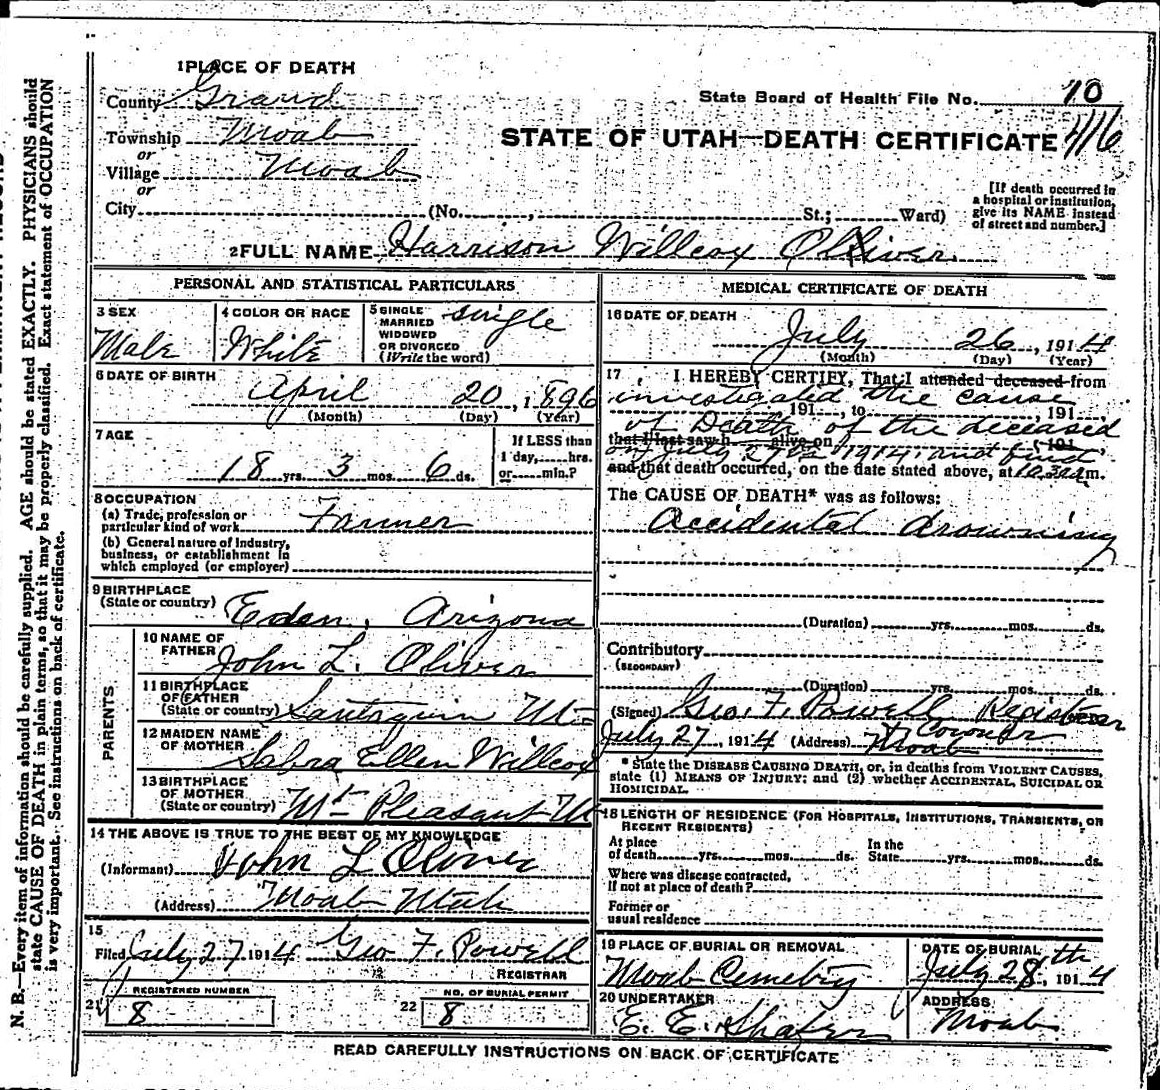 1 PLACE OF DEATH
County Grand
State Board of Health File No. 10
Township Moab
STATE OF UTAH—DEATH CERTIFICATE 416
or
Village Moab
or
City (No. , St.; Ward)
[If death occurred in
a hospital or institution,
give its NAME instead
of street and number.]
2 FULL NAME Harrison Willcox Oliver
PERSONAL AND STATISTICAL PARTICULARS
3 SEX
Male
4 COLOR OR RACE
White
5 SINGLE
MARRIED
WIDOWED
OR DIVORCED
(Write the word)
single
6 DATE OF BIRTH
April 20, 1896
(Month) (Day) (Year)
7 AGE
18 yrs. 3 mos. 6 ds.
If LESS than
1 day, hrs.
or min.?
8 OCCUPATION
(a) Trade, profession or
particular kind of work Farmer
(b) General nature of Industry,
business, or establishment in
which employed (or employer)
9 BIRTHPLACE
(State or country) Eden, Arizona
PARENTS
10 NAME OF
FATHER
John L. Oliver
11 BIRTHPLACE
OF FATHER
(State or country) Santaquin Ut
12 MAIDEN NAME
OF MOTHER
Sabra Ellen Willcox
13 BIRTHPLACE
OF MOTHER
(State or country) Mt Pleasant Ut
14 THE ABOVE IS TRUE TO THE BEST OF MY KNOWLEDGE
(Informant) John L Oliver
(Address) Moab Utah
15
Filed July 27 1914 Geo F. Powell
REGISTRAR
21 REGISTERED NUMBER
8
22 NO. OF BURIAL PERMIT
8
MEDICAL CERTIFICATE OF DEATH
16 DATE OF DEATH
July 26, 1914
(Month) (Day) (Year)
17 I HEREBY CERTIFY, That I attended deceased from
investigated the cause
191 , to , 191
of Death of the deceased
that I last saw h alive on , 191
on July 27th 1914, and find
and that death occurred, on the date stated above, at 10.30 a m.
The CAUSE OF DEATH* was as follows:
Accidental drowning
(Duration) yrs. mos. ds.
Contributory
(SECONDARY)
(Duration) yrs. mos. ds.
(Signed) Geo. F. Powell Registrar
Coroner
July 27, 1914 (Address) Moab
* State the DISEASE CAUSING DEATH, or, in deaths from VIOLENT CAUSES,
state (1) MEANS OF INJURY; and (2) whether ACCIDENTAL, SUICIDAL OR
HOMICIDAL.
18 LENGTH OF RESIDENCE (FOR HOSPITALS, INSTITUTIONS, TRANSIENTS, OR
RECENT RESIDENTS)
At place
of death yrs. mos. ds.
In the
State yrs. mos. ds.
Where was disease contracted,
if not at place of death?
Former or
usual residence
19 PLACE OF BURIAL OR REMOVAL
Moab Cemetry
DATE OF BURIAL
July 28th, 1914
20 UNDERTAKER
E. E. Shafer
ADDRESS
Moab
READ CAREFULLY INSTRUCTIONS ON BACK OF CERTIFICATE
N. B.—Every item of information should be carefully supplied. AGE should be stated EXACTLY. PHYSICIANS should
state CAUSE OF DEATH in plain terms, so that it may be properly classified. Exact statement of OCCUPATION
is very important. See instructions on back of certificate.